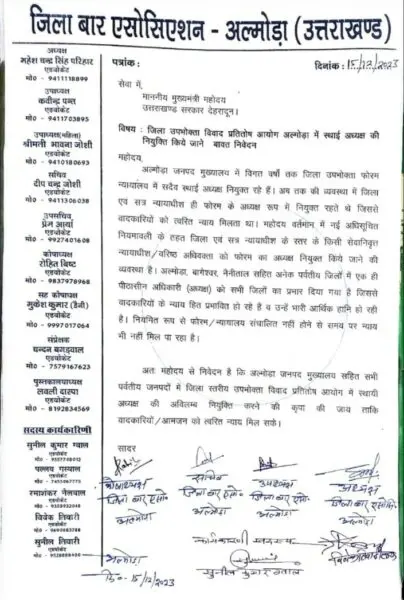 जिला बार एसोसिएशन - अल्मोड़ा (उत्तराखण्ड)
अध्यक्ष
महेश चन्द्र सिंह परिहार
एडवोकेट
मो० - 9411118899
उपाध्यक्ष
कवीन्द्र पन्त
एडवोकेट
मो० - 9411703895
उपाध्यक्ष(महिला)
श्रीमती भावना जोशी
एडवोकेट
मो० - 9410180693
सचिव
दीप चन्द्र जोशी
एडवोकेट
मो० - 9411306038
उपसचिव
प्रेम आर्या
एडवोकेट
मो० - 9927401608
कोषाध्यक्ष
रोहित बिष्ट
एडवोकेट
मो० - 9837978968
सह कोषाध्यक्ष
मुकेश कुमार (डैनी)
एडवोकेट
मो० - 9997017064
संप्रेक्षक
चन्दन बगडवाल
एडवोकेट
मो० - 7579167623
पुस्तकालयाध्यक्ष
लवली दास्पा
एडवोकेट
मो० - 8192834569
सदस्य कार्यकारिणी
सुनील कुमार ग्वाल
एडवोकेट
पल्लव
एडवोकेट
रमाशंकर नैलवाल
एडवोकेट
विवेक तिवारी
एडवोकेट
सुनील तिवारी
एडवोकेट
पत्रांक :
दिनांक : 15/12/2023
सेवा में,
माननीय मुख्यमंत्री महोदय
उत्तराखण्ड सरकार देहरादून।
विषय : जिला उपभोक्ता विवाद प्रतितोष आयोग अल्मोड़ा में स्थाई अध्यक्ष की
नियुक्ति किये जाने बावत निवेदन
महोदय,
अल्मोड़ा जनपद मुख्यालय में विगत वर्षों तक जिला उपभोक्ता फोरम
न्यायालय में सदैव स्थाई अध्यक्ष नियुक्त रहे हैं। अब तक की व्यवस्था में जिला
एवं सत्र न्यायाधीश ही फोरम के अध्यक्ष रूप में नियुक्त रहते थे जिससे
वादकारियों को त्वरित न्याय मिलता था। महोदय वर्तमान में नई अधिसूचित
नियमावली के तहत जिला एवं सत्र न्यायाधीश के स्तर के किसी सेवानिवृत्त
न्यायाधीश/वरिष्ठ अधिवक्ता को फोरम का अध्यक्ष नियुक्त किये जाने की
व्यवस्था है। अल्मोड़ा, बागेश्वर, नैनीताल सहित अनेक पर्वतीय जिलों में एक ही
पीठासीन अधिकारी (अध्यक्ष) को सभी जिलों का प्रभार दिया गया है जिससे
वादकारियों के न्याय हित प्रभावित हो रहे है व उन्हें भारी आर्थिक हानि हो रही
है। नियमित रूप से फोरम/न्यायालय संचालित नहीं होने से समय पर न्याय
भी नहीं मिल पा रहा है।
अतः महोदय से निवेदन है कि अल्मोड़ा जनपद मुख्यालय सहित सभी
पर्वतीय जनपदों में जिला स्तरीय उपभोक्ता विवाद प्रतितोष आयोग में स्थायी
अध्यक्ष की अविलम्ब नियुक्ति करने की कृपा की जाय ताकि
वादकारियों/आमजन को त्वरित न्याय मिल सके।
सादर
कोषाध्यक्ष सचिव उपाध्यक्ष अध्यक्ष
जिला बार एसो० जिला बार एसो० जिला बार एसो० जिला बार एसो०
अल्मोड़ा अल्मोड़ा अल्मोड़ा अल्मोड़ा
कार्यकारणी सदस्य
अल्मोड़ा
दि०- 15/12/2023
सुनील कुमार ग्वाल